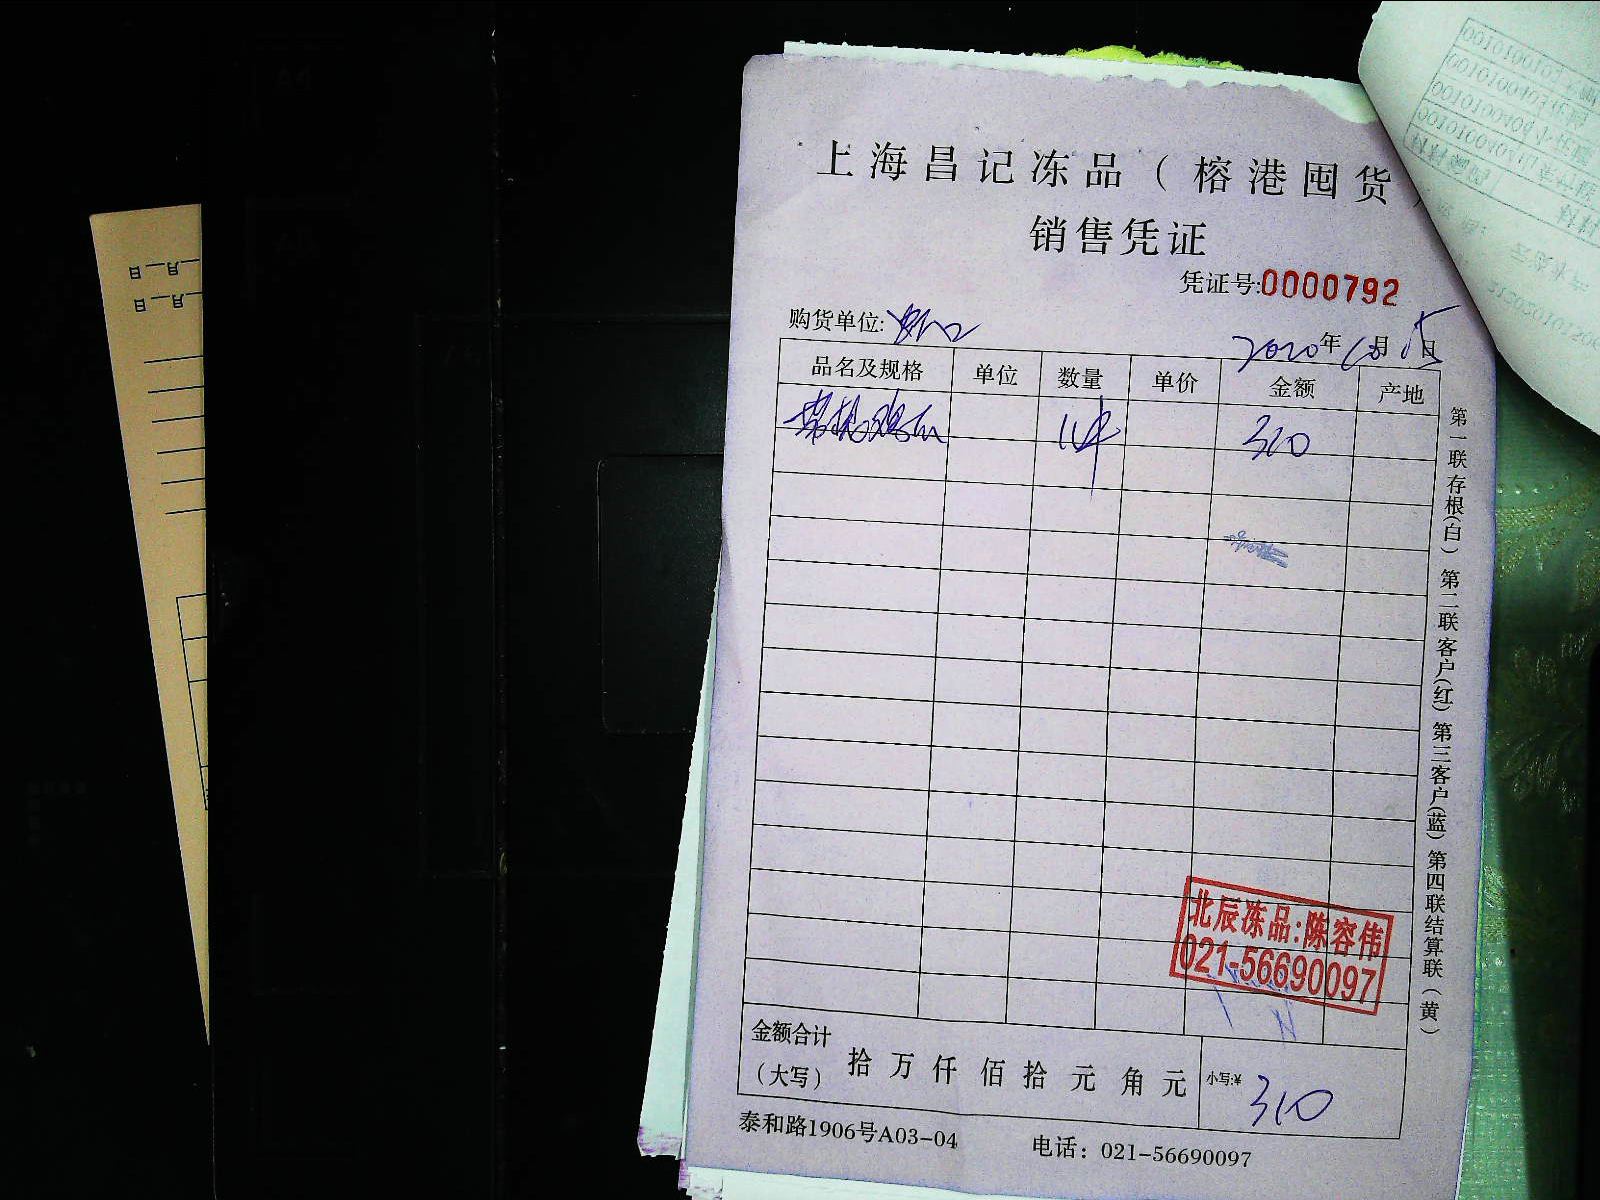 上海昌记冻品（榕港囤货）
销售凭证
凭证号:0000792
购货单位:
2020年10月15日
品名及规格 单位 数量 单价 金额 产地
1件 310
北辰冻品:陈容伟
021-56690097
金额合计
（大写） 拾 万 仟 佰 拾 元 角 元 小写:¥ 310
泰和路1906号A03-04 电话：021-56690097
第一联存根(白) 第二联客户(红) 第三客户(蓝) 第四联结算联(黄)
日__月__
日__月__